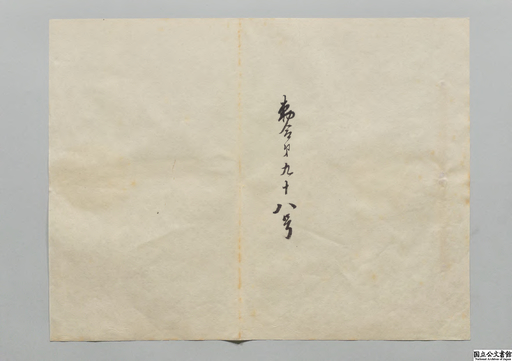 勅令第九十八号
国立公文書館
National Archives of Japan